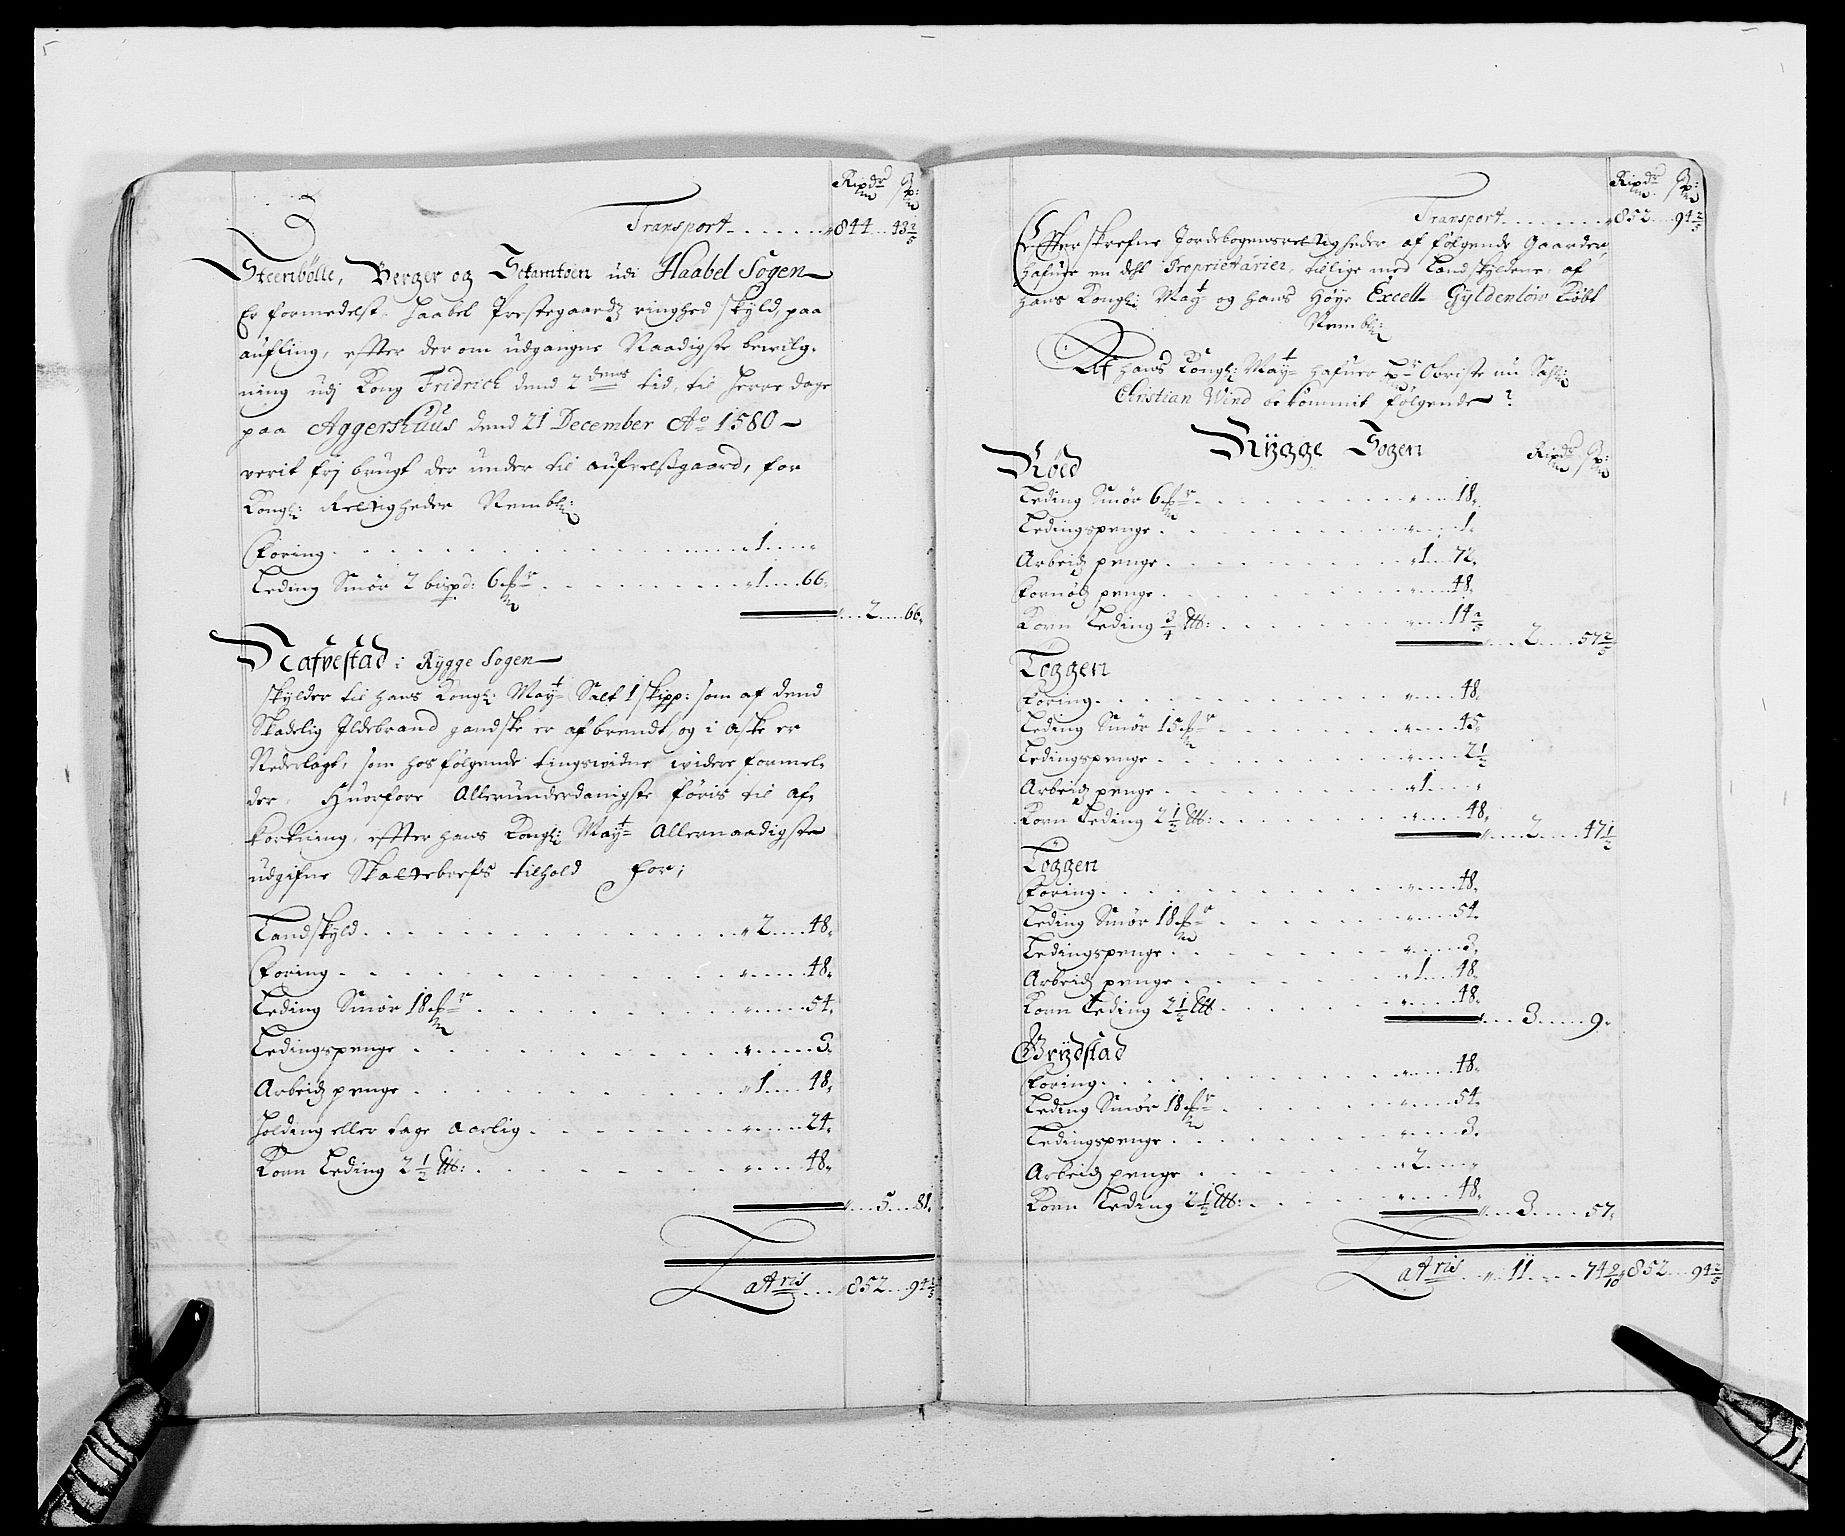 Rixdr ſp:
Transport . . . . . . . 844 . . . 43 2/5
Steenbölle, Berger og Stamtsen udi Haabel Sogen
Er formedelst Haabel Prestegaardz ringhed skyld, paa
aufling, effter der om udgangne Naadigste bewilg-
ning udj Kong Fridrich dend 2 dens tid, til Herre dage
paa Aggershuus dend 21 December Ao 1580 –
verit frj brugt der under til aufvelsgaard, for
Kongl: Rettigheder Nembl:
Foring . . . . . . . . . . 1 . . . .
Leding Smör 2 bispd: 6 mr . . . . . . 1 . . . 66.
2 . . . 66.
Rafvestad i Rygge Sogen
skylder til hans Kongl: Mayt Salt 1 skipp: som af dend
Skadelig Ildebrand gandske er af brendt og i Aske er
Nederlagt, som hos fölgende tingswidne widere formel-
der, Huorfore Allerunderdanigste föris til af-
kortning, effter hans Kongl: Mayt Allernaadigste
udgifne Skattebrefs tilhold for;
Landskyld . . . . . . . . . . 2 . . . 48.
Foring . . . . . . . . . . 48.
Leding Smör 18 mr . . . . . . . . 54.
Ledingspenge . . . . . . . . 3.
Arbeidz penge . . . . . . . . 1 . . . 48.
Holding eller tage aarlig . . . . . . . 24.
Korn Leding 2 1/2 Ltt: . . . . . . . 48.
5 . . . 81.
Latris . . . 852 . . . 94 2/5
Rixdr ſp:
Transport . . . . . . . 852 . . . 94 2/5
Effterskrefne Jordebogensrettigheder af fölgende Gaarder,
hafuer en dehl Proprietarier, tillige med Landskyldene, af
hans Kongl: Mayt og hans Höye Excell. Gyldenlöw Köbt
Nembl:
Af hans Kongl: Mayt hafuer Hr Obriste nu Sahl:
Christian Wind bekommit fölgende ?
Rygge Sogen
Rixdr ſp:
Röld
Leding Smör 6 mr . . . . . . . . 18.
Ledingspenge . . . . . . . . 1.
Arbeidz penge . . . . . . . . 1 . . . 72.
Fornödz penge . . . . . . . . 48.
Korn Leding 3/4 Ltt: . . . . . . . 14 2/5
2 . . . 57 2/5
Löggen
Foring . . . . . . . . . . 48.
Leding Smör 15 mr . . . . . . . . 45.
Ledingspenge . . . . . . . . 2 1/2
Arbeidz penge . . . . . . . . 1 . . . .
Korn Leding 2 1/2 Ltt: . . . . . . . 48.
2 . . . 47 1/2
Löggen
Foring . . . . . . . . . . 48.
Leding Smör 18 mr . . . . . . . . 54.
Ledingspenge . . . . . . . . 3.
Arbeidz penge . . . . . . . . 1 . . . 48.
Korn Leding 2 1/2 Ltt . . . . . . . 48.
3 . . . 9.
Brydstad
Foring . . . . . . . . . . 48.
Leding Smör 18 mr . . . . . . . . 54.
Ledingspenge . . . . . . . . 3.
Arbeidz penge . . . . . . . . 2 . . . .
Korn Leding 2 1/2 Ltt: . . . . . . . 48.
3 . . . 57.
Latris . . . 11 . . . 74 9/10 852 . . . 94 2/5